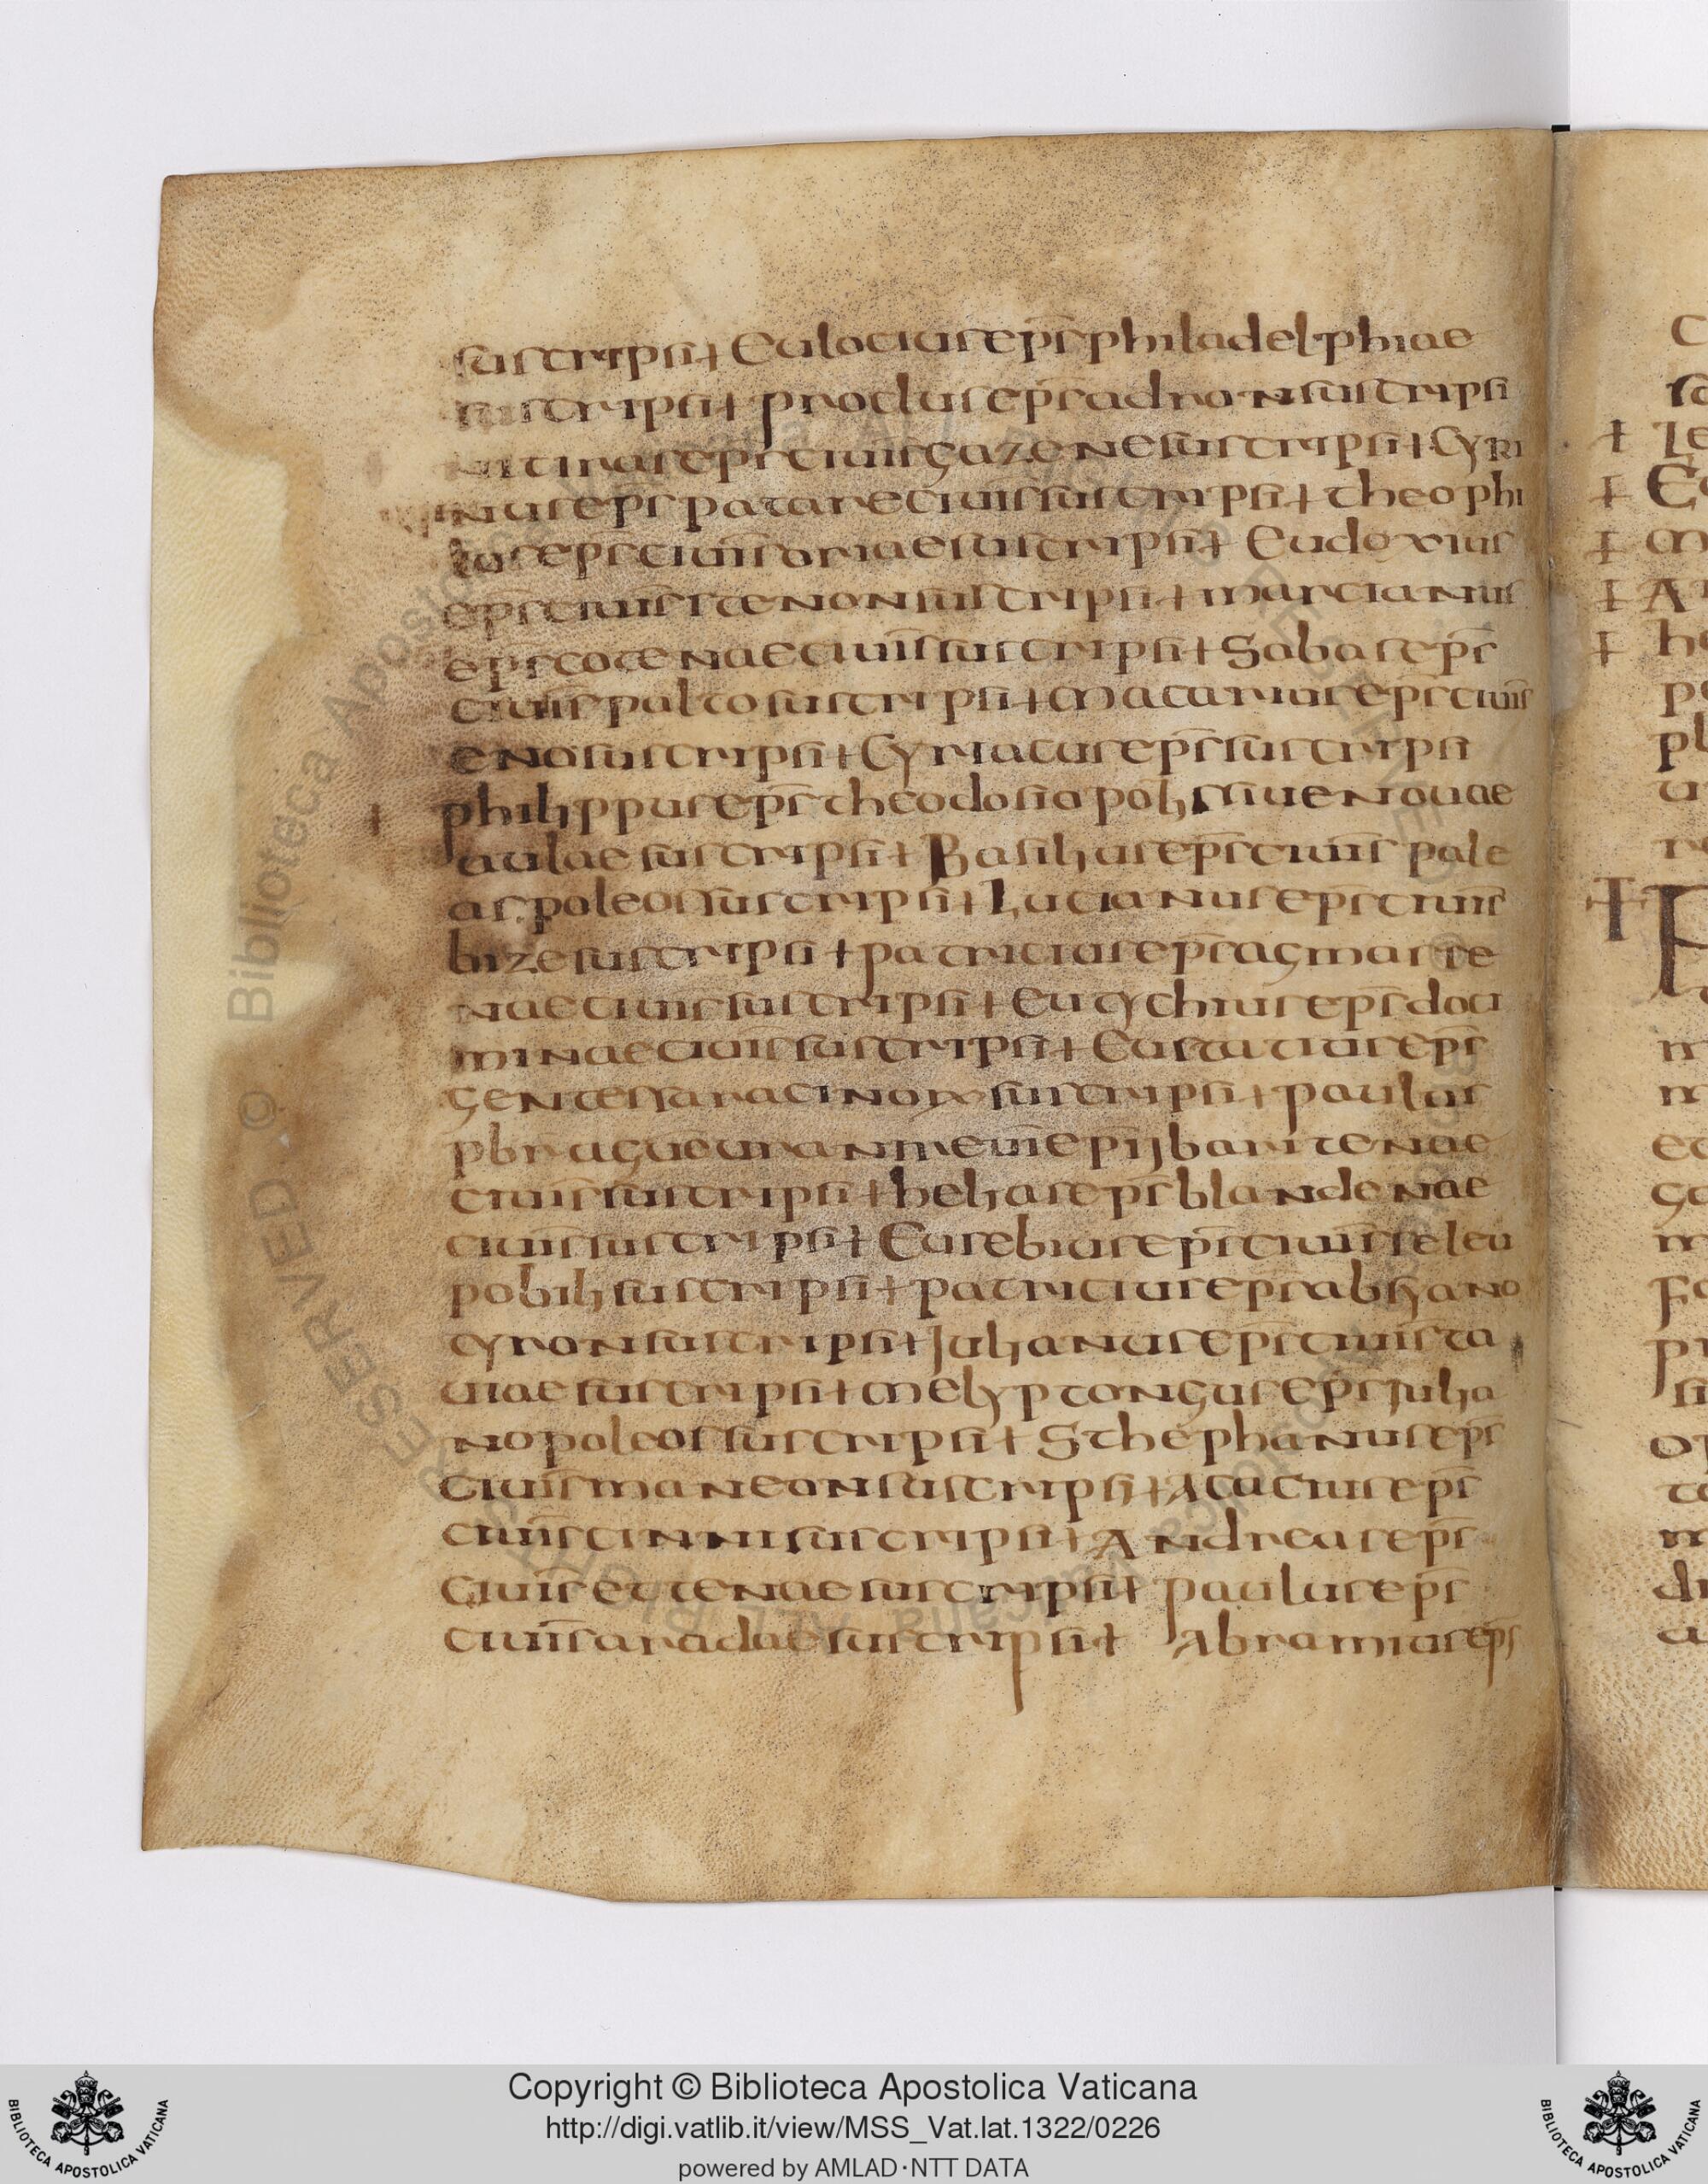 suscripsit Eulocius ep̄s philadelphiae
suscripsit proclus ep̄s adraon suscripsi
ep̄s civit̄ gazene suscripsit Cyri
nus ep̄s patare civit̄ suscripsit theophi
los ep̄s civit̄ oriae suscripsit Eudoxius
ep̄s civit̄ itenon suscripsit marcianus
ep̄s cotenae civit̄ suscripsit Sabas ep̄s
civit̄ palto suscripsit macarius ep̄s civit̄
eno suscripsit Cyriacus ep̄s suscripsi
+ philippus ep̄s theodosiopoli sive novae
aulae suscripsit Basilius ep̄s civit̄ pale
as poleos suscripsit Lucianus ep̄s civit̄
bize suscripsit patricius ep̄s acmasse
nae civit̄ suscripsit Eutychius ep̄s doci
minae civit̄ suscripsit Eustatius ep̄s
gentes saracinorum suscripsit paulus
pbr̄ baritenae
civit̄ suscripsit helias ep̄s blandenae
civit̄ suscripsit Eusebius ep̄s civit̄ seleu
pobili suscripsit patricius ep̄s abliano
cyron suscripsit Julianus ep̄s civit̄ ta
viae suscripsit melyptongus ep̄s Julia
nopoleos suscripsit Sthephanus ep̄s
civit̄ maneon suscripsit Acacius ep̄s
civit̄ cinni suscripsit Andreas ep̄s
civit̄ ettenae suscripsit paulus ep̄s
civit̄ aradae suscripsit Abramius ep̄s
Copyright © Biblioteca Apostolica Vaticana
http://digi.vatlib.it/view/MSS_Vat.lat.1322/0226
powered by AMLAD·NTT DATA
BIBLIOTECA APOSTOLICA VATICANA
BIBLIOTECA APOSTOLICA VATICANA